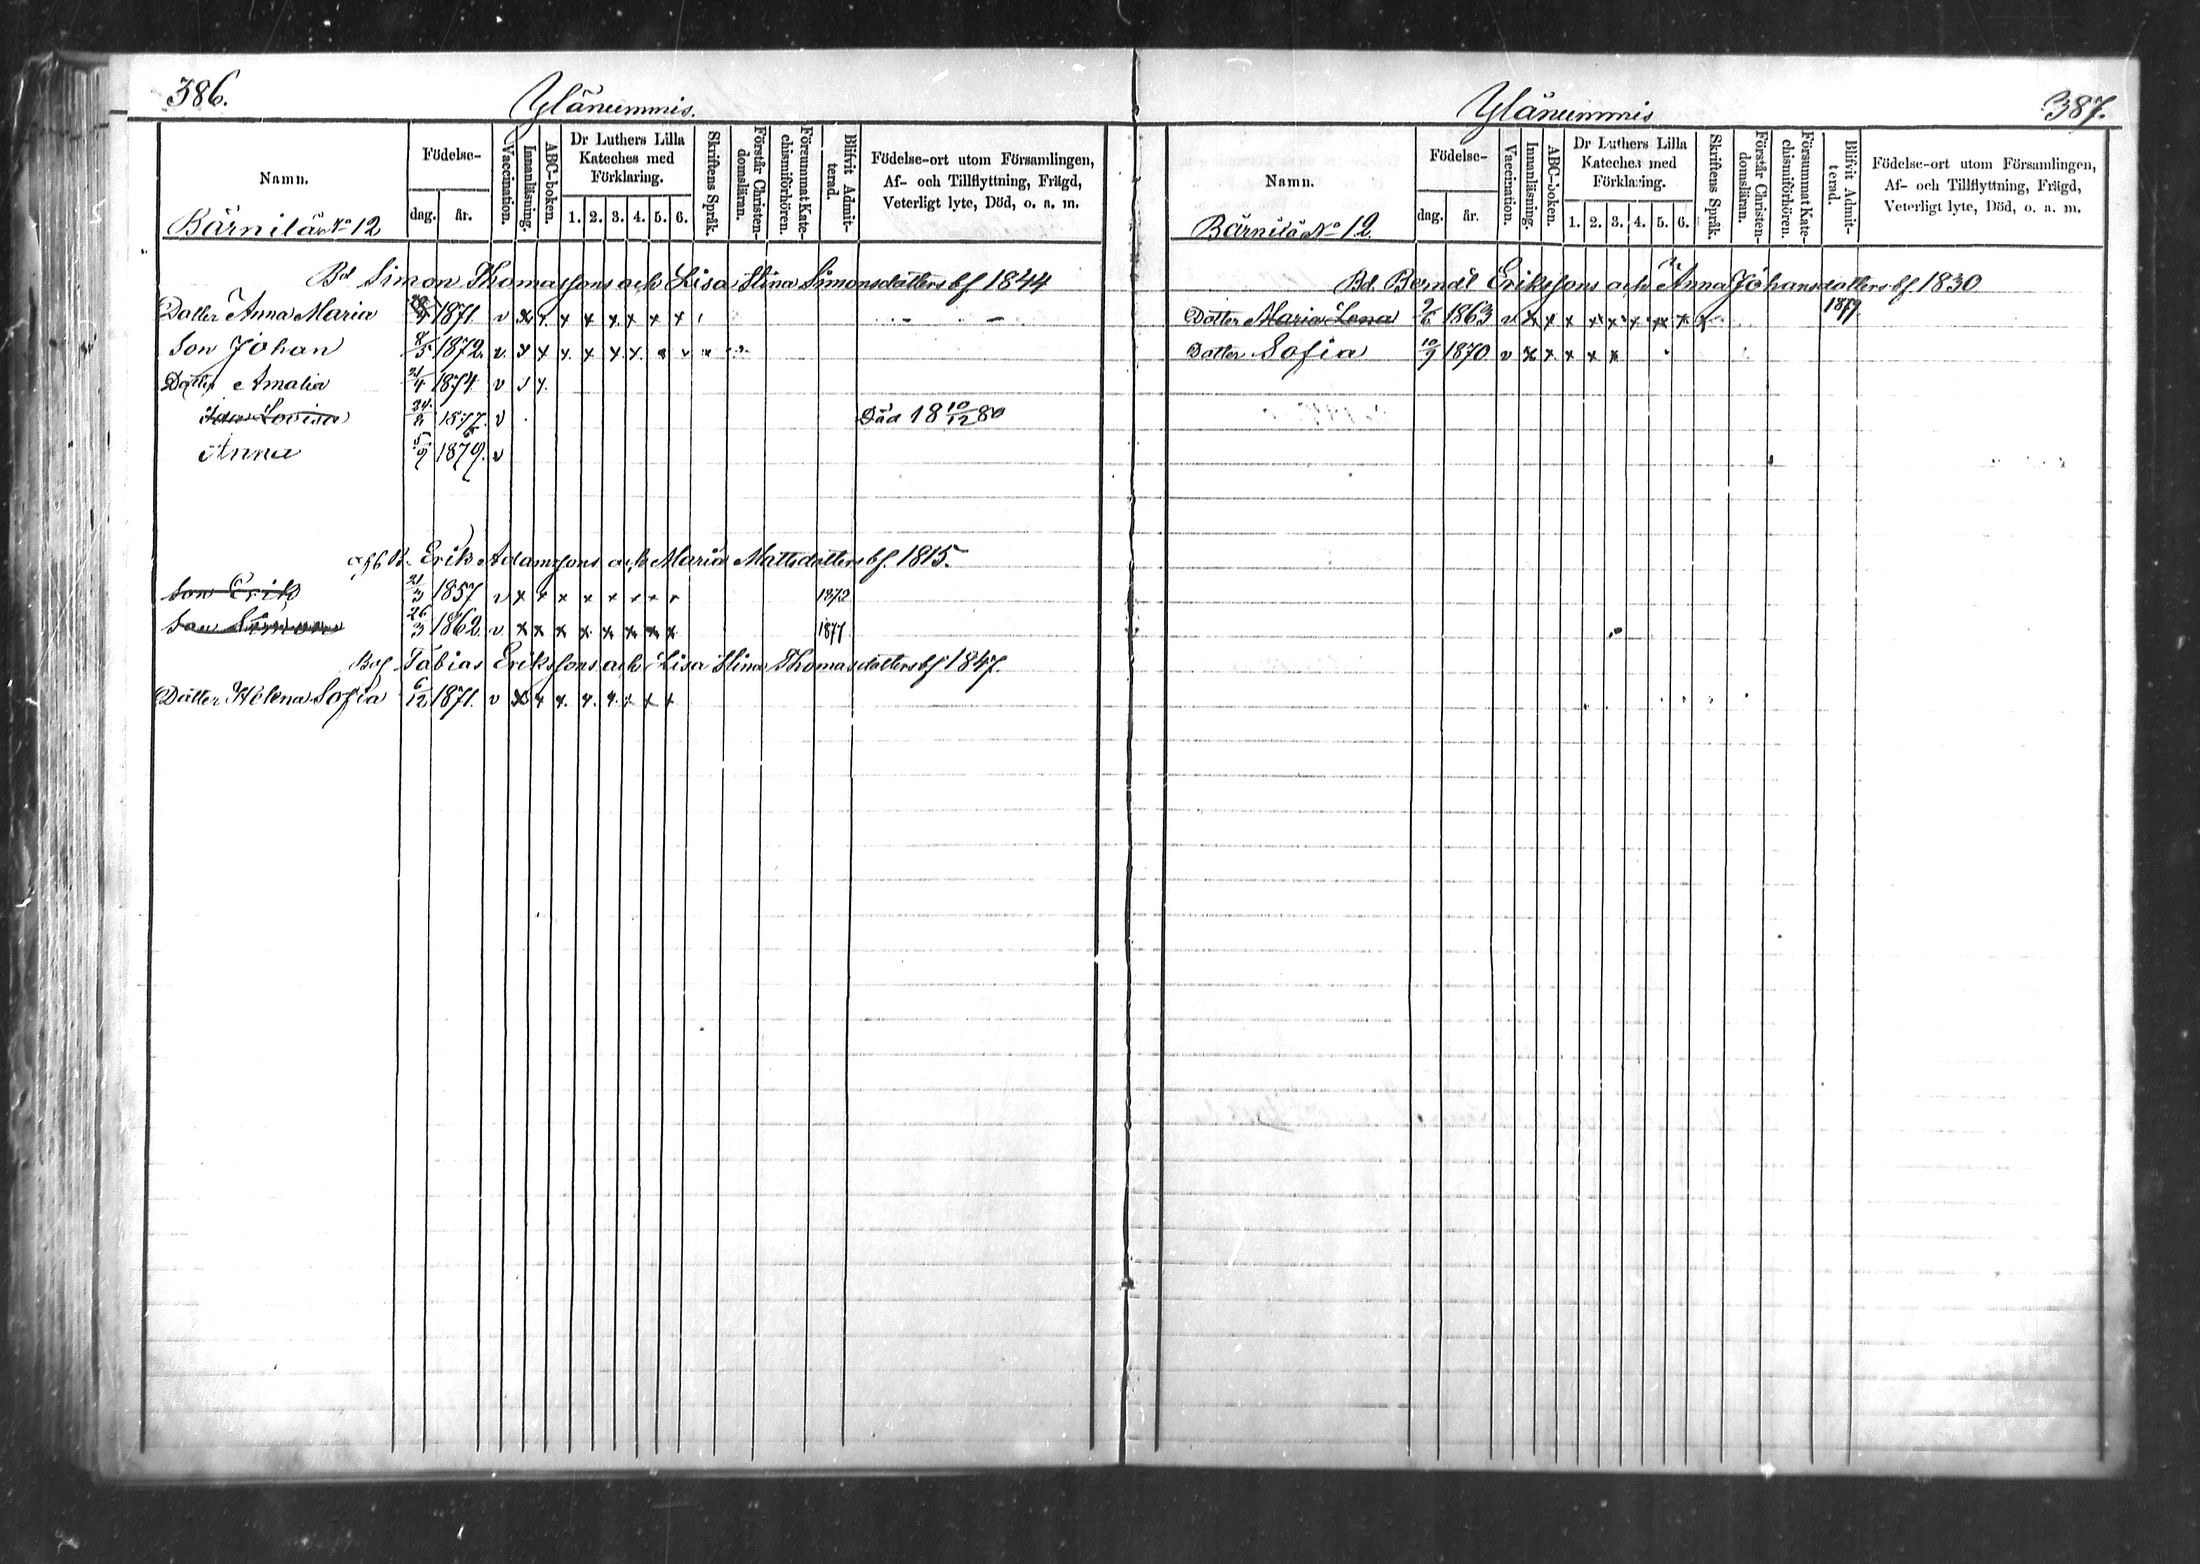 386.
Ylänummis.
Namn.
Födelse-
dag. år.
Vaccination.
Innanläsning.
ABC-boken.
Dr Luthers Lilla
Kateches med
Förklaring.
1. 2. 3. 4. 5. 6.
Skriftens Språk.
Förstår Christen-
domsläran.
Försummat Kate-
chismiförhören.
Blifvit Admit-
terad.
Födelse-ort utom Församlingen,
Af- och Tillflyttning, Frägd,
Veterligt lyte, Död, o. a. m.
Bärnilä No 12
Bd Simon Thomassons och Lisa Stina Simonsdotters bf. 1844
Dotter Anna Maria 1871. v x x x x x x x x
Son Johan 8/5 1872. v x x x x x x
Dotter Amalia 21/4 1874 v
Ida Lovisa 24/2 1877. v Död 18 10/12 80
Anna 5/9 1879. v
Erik Adamssons och Maria Mattsdotters bf. 1815.
Son Erik 21/3 1857 v x x x x x x x x 1872
Son Simon 26/3 1862 v x x x x x x x x 1877
Tobias Erikssons och Lisa Stina Thomasdotters bf 1847.
Dotter Helena Sofia 6/12 1871. v x x x x x x x x
387.
Ylänummis
Namn.
Födelse-
dag. år.
Vaccination.
Innanläsning.
ABC-boken.
Dr Luthers Lilla
Kateches med
Förklaring.
1. 2. 3. 4. 5. 6.
Skriftens Språk.
Förstår Christen-
domsläran.
Försummat Kate-
chismiförhören.
Blifvit Admit-
terad.
Födelse-ort utom Församlingen,
Af- och Tillflyttning, Frägd,
Veterligt lyte, Död, o. a. m.
Bärnilä No 12
Bd. Berndt Erikssons och Anna Johansdotters bf. 1830
Dotter Maria Lena 2/6 1863 v x x x x x x x x x 1879
Dotter Sofia 10/9 1870 v x x x x x